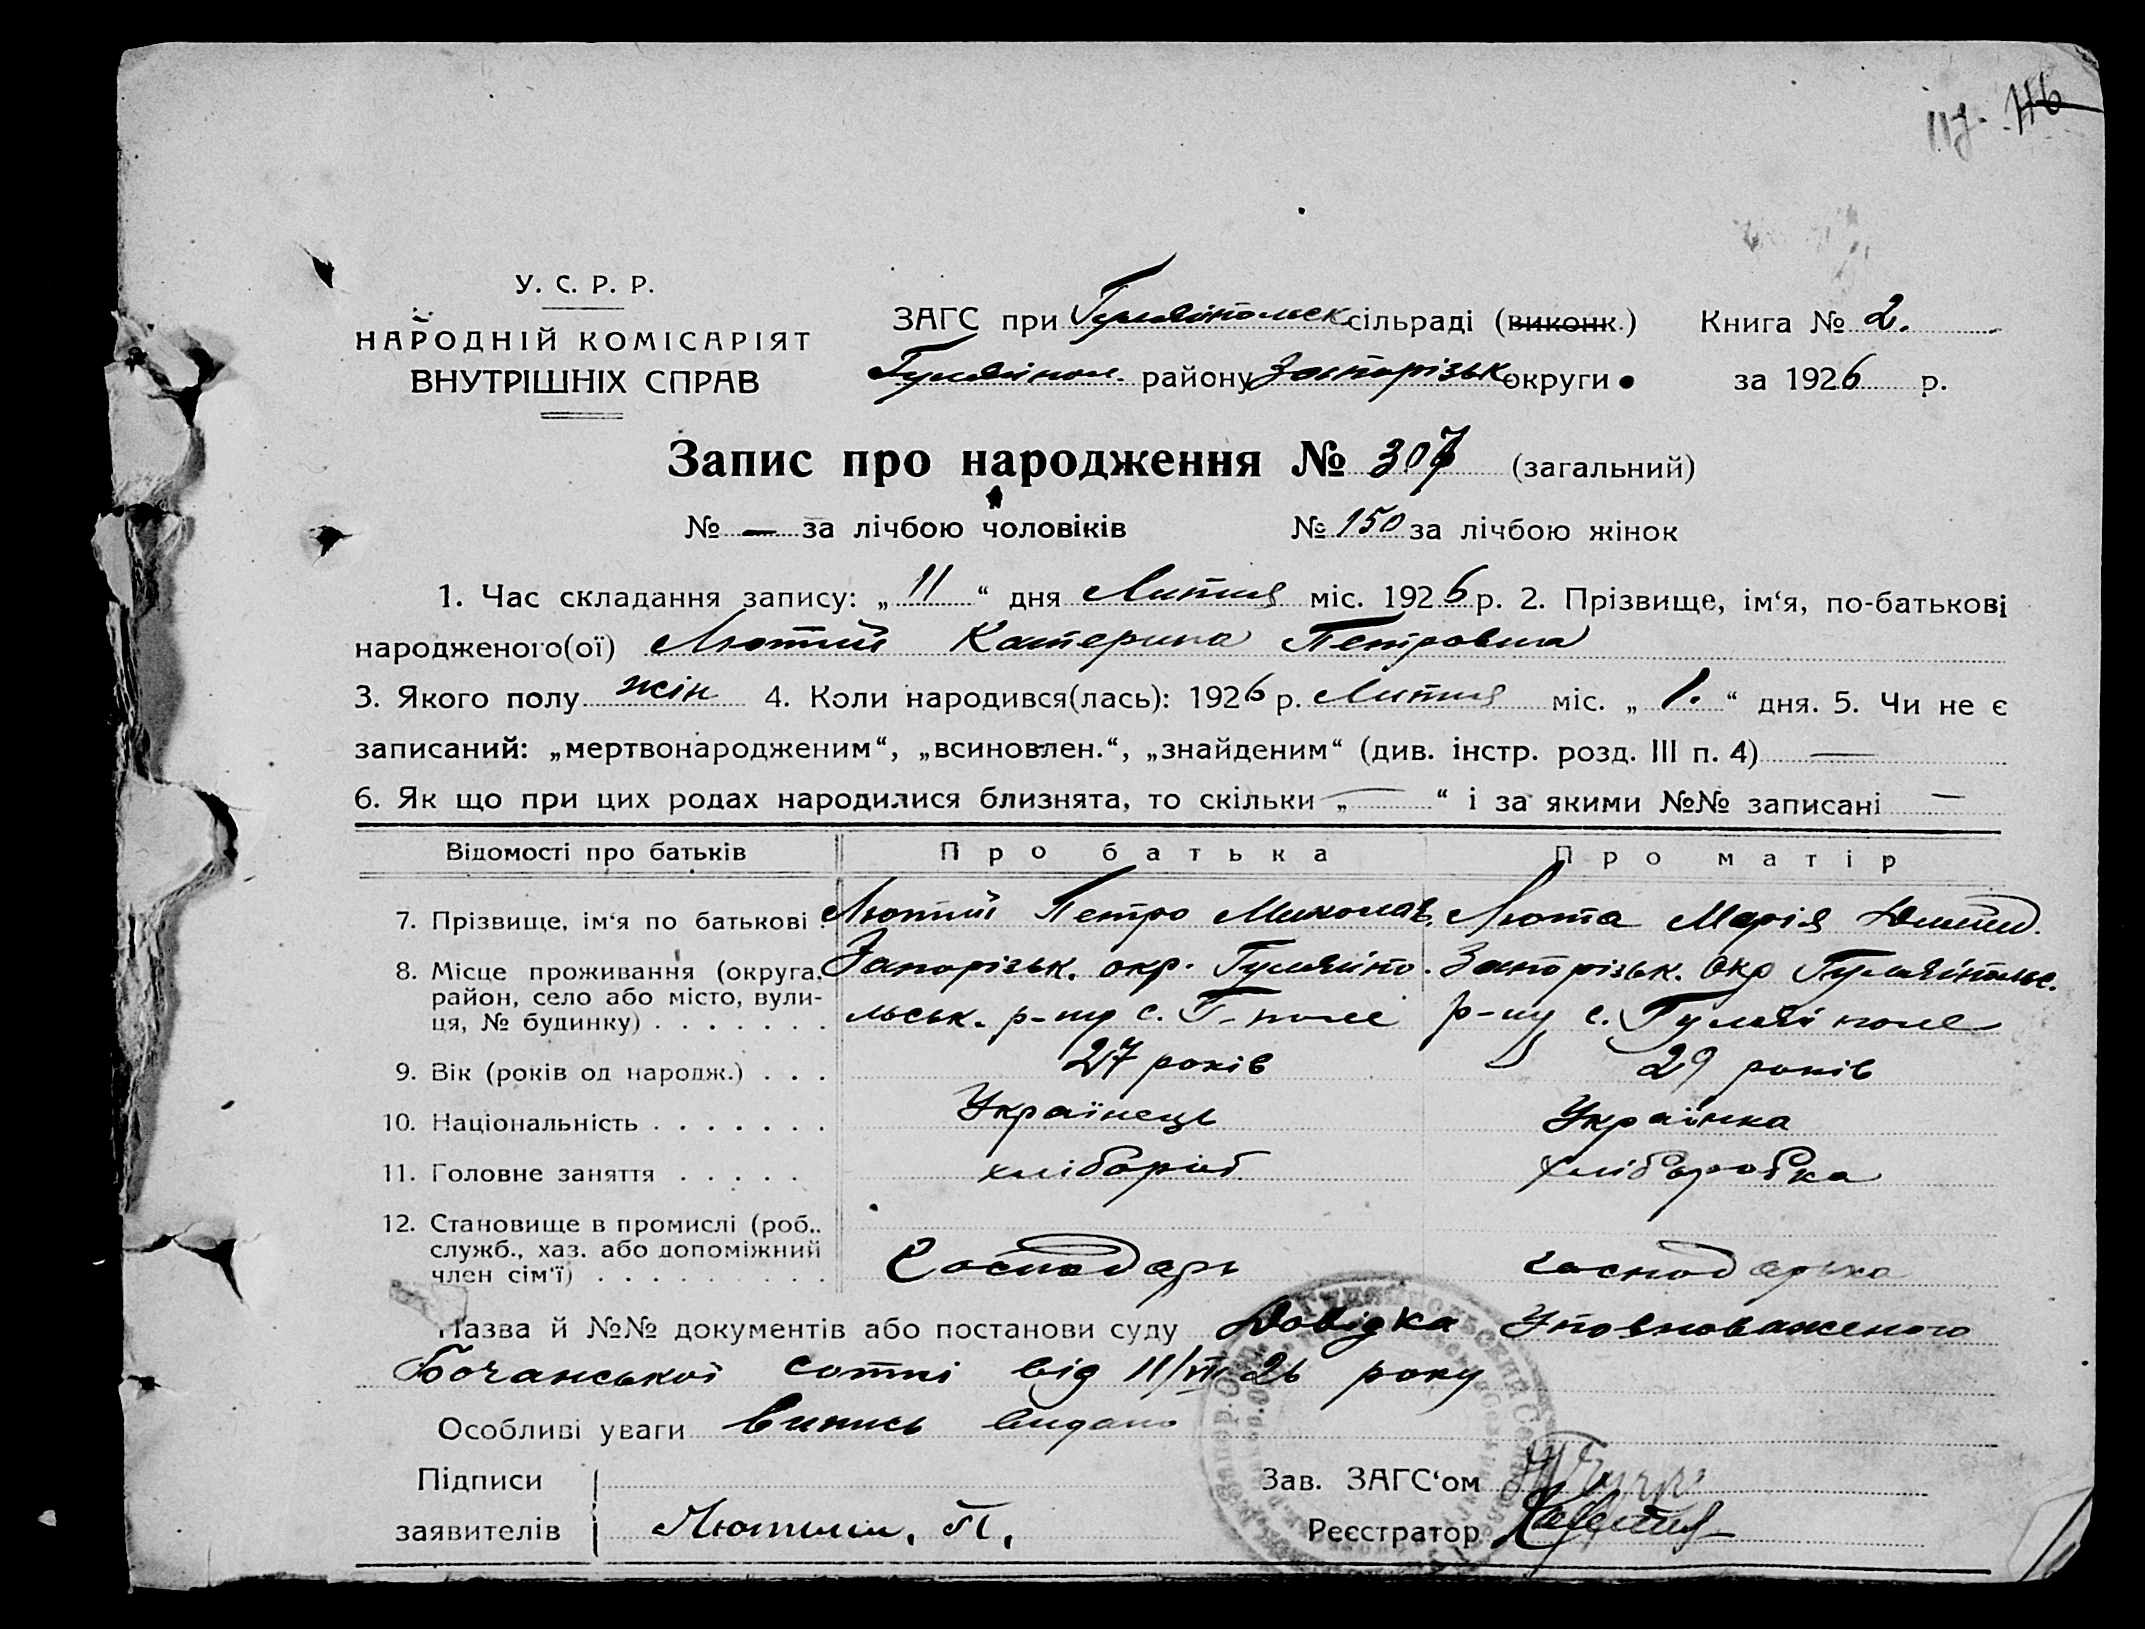 У. С. Р. Р.
НАРОДНІЙ КОМІСАРІЯТ
ВНУТРІШНІХ СПРАВ
ЗАГС при Гуляйпольск сільраді (виконк.) Книга № 2.
Гуляйпол. району Запорізьк округи за 1926 р.
Запис про народження № 307 (загальний)
№ — за лічбою чоловіків № 150 за лічбою жінок
1. Час складання запису: „ 11 “ дня Лютия міс. 1926 р. 2. Прізвище, ім‘я, по-батькові
народженого(ої) Лютий Катерина Петровна
3. Якого полу жін 4. Коли народився(лась): 1926 р. Лютия міс. „ 1. “ дня. 5. Чи не є
записаний: „мертвонародженим“, „всиновлен.“, „знайденим“ (див. інстр. розд. III п. 4) —
6. Як що при цих родах народилися близнята, то скільки „ — “ і за якими №№ записані —
Відомості про батьків Про батька Про матір
7. Прізвище, ім‘я по батькові . Лютий Петро Миколав. Люта Марія
8. Місце проживання (округа, район, село або місто, вулиця, № будинку) . . . . . . . Запорізьк. окр. Гуляйпольськ. р-ну с. Г-поле Запорізьк. окр Гуляйпольс. р-ну с. Гуляй поле
9. Вік (років од народж.) . . . 27 років 29 років
10. Національність . . . . . . . Українець Українка
11. Головне заняття . . . . . хлібороб хліборобка
12. Становище в промислі (роб., служб., хаз. або допоміжний член сім‘ї) . . . . . . . . . Господарь господарька
Назва й №№ документів або постанови суду Довідка Уповноваженого
Бочанської сотні від 11/VII 26 року
Особливі уваги Випись видано
Підписи Зав. ЗАГС‘ом
заявителів Лютий, П. Реєстратор